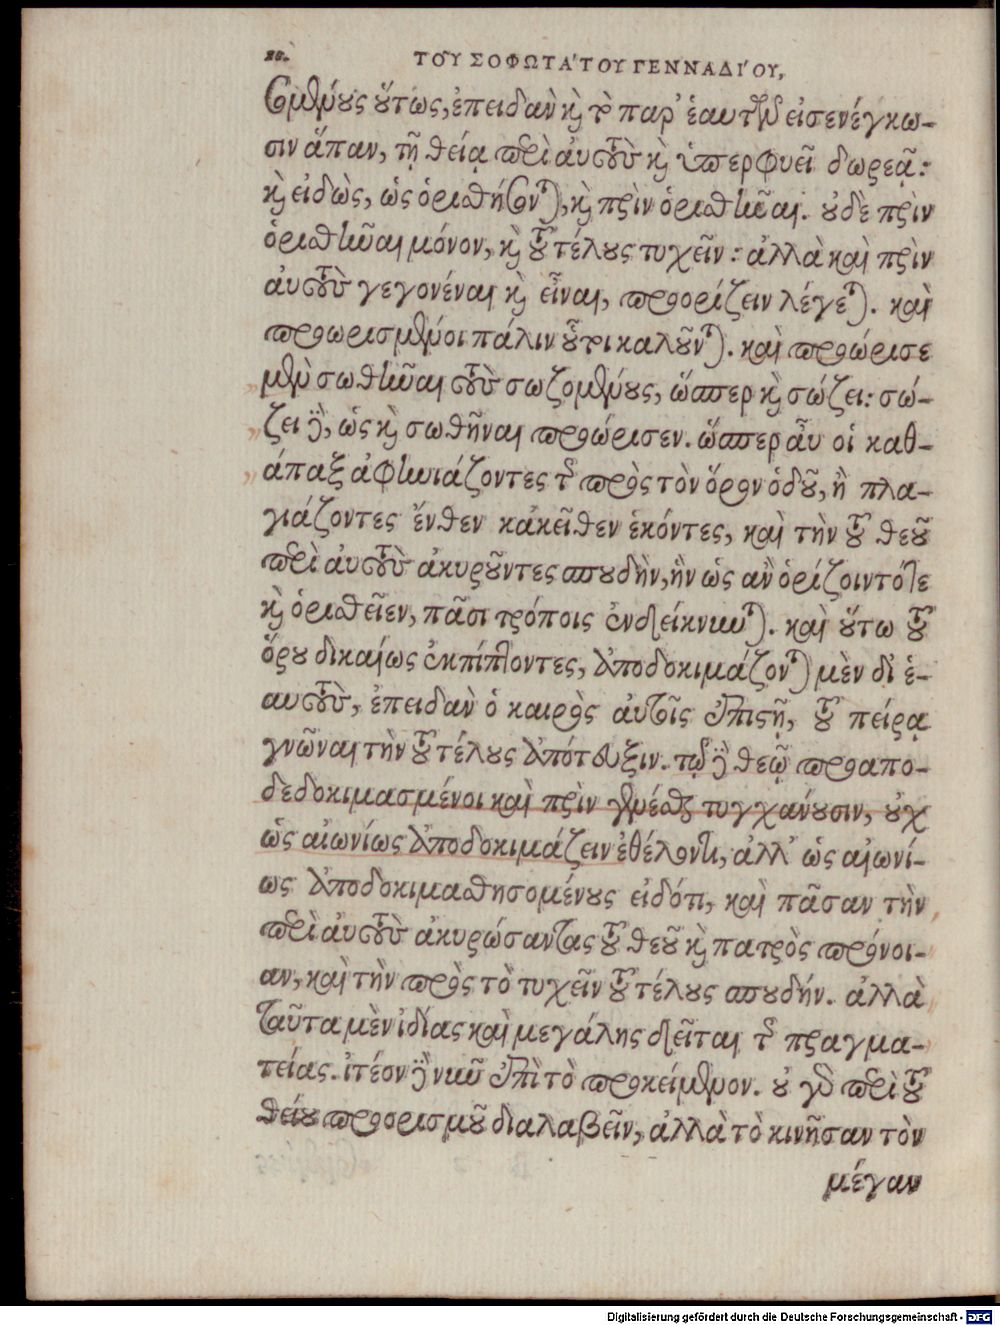 ΤΟΥ͂ ΣΟΦΩΤΑ΄ΤΟΥ ΓΕΝΝΑΔΙ΄ΟΥ,
σομένους οὕτως, ἐπειδὰν καὶ τὸ παρ' ἑαυτῶν εἰσενέγκω-
σιν ἅπαν, τῇ θείᾳ περὶ αὐτοὺς καὶ ὑπερφυεῖ δωρεᾷ:
καὶ εἰδὼς, ὡς ὁρισθήσονται, καὶ πρὶν ὁρισθῆναι. οὐδὲ πρὶν
ὁρισθῆναι μόνον, καὶ τοῦ τέλους τυχεῖν: ἀλλὰ καὶ πρὶν
αὐτοὺς γεγονέναι καὶ εἶναι, προορίζειν λέγεται. καὶ
προωρισμένοι πάλιν οὗτοι καλοῦνται. καὶ προώρισε
μὲν σωθῆναι τοὺς σωζομένους, ὥσπερ καὶ σώζει: σώ-
ζει δὲ, ὡς καὶ σωθῆναι προώρισεν. ὥσπερ αὖ οἱ καθ-
άπαξ ἀφηνιάζοντες τῆς πρὸς τὸν ὅρον ὁδοῦ, ἢ πλα-
γιάζοντες ἔνθεν κἀκεῖθεν ἑκόντες, καὶ τὴν τοῦ θεοῦ
περὶ αὐτοὺς ἀκυροῦντες σπουδὴν, ἣν ὡς ἂν ὁρίζοιντό τε
καὶ ὁρισθεῖεν, πᾶσι τρόποις ἐνδείκνυται. καὶ οὕτω τοῦ
ὅρου δικαίως ἐκπίπτοντες, ἀποδοκιμάζονται μὲν δι' ἑ-
αυτοὺς, ἐπειδὰν ὁ καιρὸς αὐτοῖς ἐπιστῇ, τοῦ πείρᾳ
γνῶναι τὴν τοῦ τέλους ἀπότευξιν. τῷ δὲ θεῷ προαπο-
δεδοκιμασμένοι καὶ πρὶν γενέσθαι τυγχάνουσιν, οὐχ
ὡς αἰωνίως ἀποδοκιμάζειν ἐθέλοντι, ἀλλ' ὡς αἰωνί-
ως ἀποδοκιμασθησομένους εἰδότι, καὶ πᾶσαν τὴν
περὶ αὐτοὺς ἀκυρώσαντας τοῦ θεοῦ καὶ πατρὸς πρόνοι-
αν, καὶ τὴν πρὸς τὸ τυχεῖν τοῦ τέλους σπουδήν. ἀλλὰ
ταῦτα μὲν ἰδίας καὶ μεγάλης δεῖται τῆς πραγμα-
τείας. ἰτέον δὲ νῦν ἐπὶ τὸ προκείμενον. οὐ γὰρ περὶ τοῦ
θείου προορισμοῦ διαλαβεῖν, ἀλλὰ τὸ κινῆσαν τὸν
μέγαν
Digitalisierung gefördert durch die Deutsche Forschungsgemeinschaft - DFG